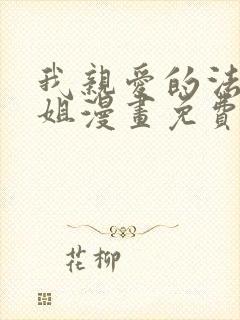 我親愛的法
姐漫畫免費
花柳